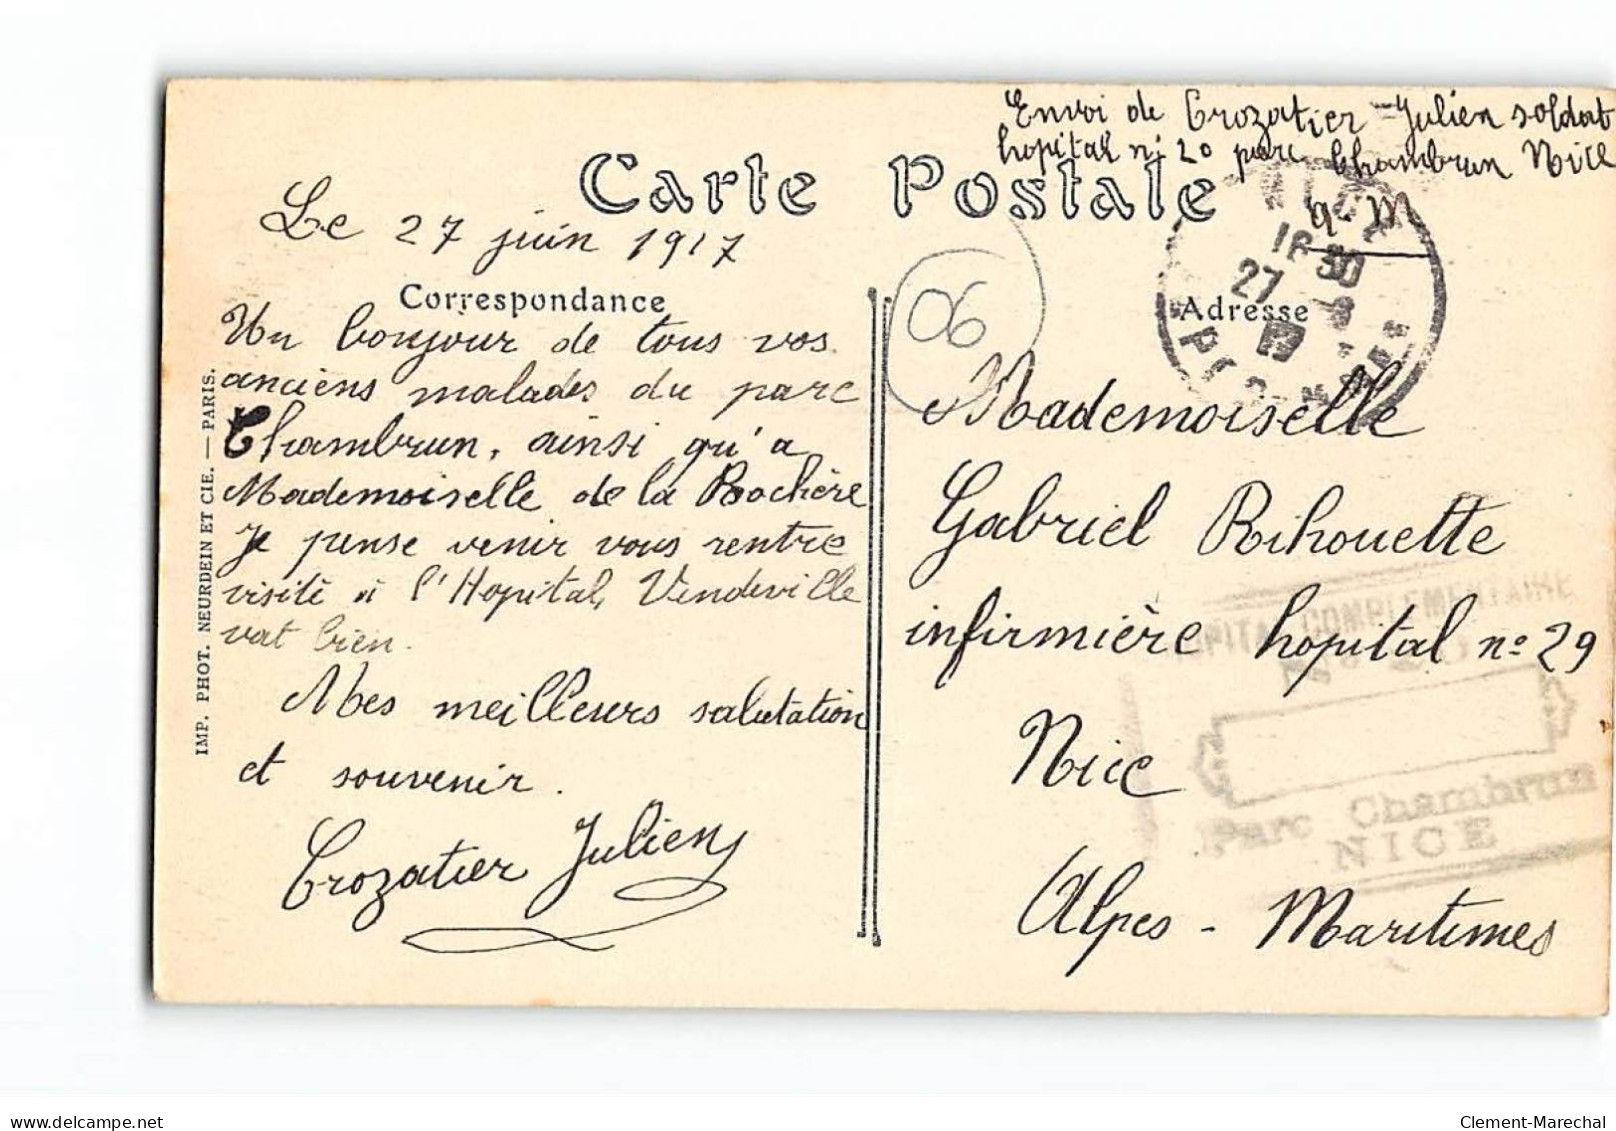 Envoi de Crozatier Julien soldat
hopital n: 20 parc Chambrun Nice
Carte Postale
Le 27 juin 1917
Correspondance
Un bonjour de tous vos
anciens malades du parc
Chambrun, ainsi qu'a
Mademoiselle de la Rochère
Je pense venir vous rentre
visite à l'Hopital, Vendeville
vat bien.
Mes meilleurs salutation
et souvenir.
Crozatier Julien
IMP. PHOT. NEURDEIN ET CIE. — PARIS.
06
NICE
18 30
27
Adresse
Mademoiselle
Gabriel Rihouette
infirmière hopital n° 29
Nice
Alpes - Maritimes
HOPITAL COMPLEMENTAIRE
Parc Chambrun
NICE
delcampe.net
Clement-Marechal